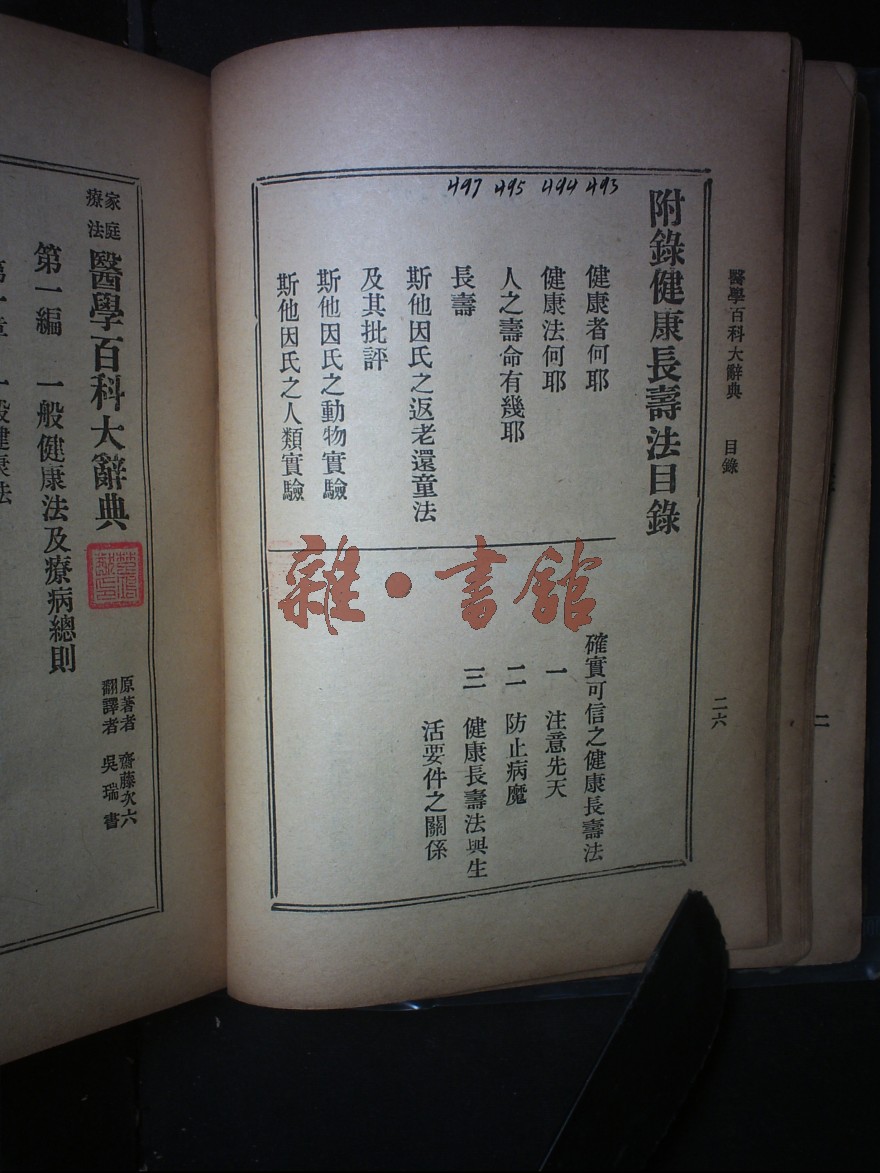 醫學百科大辭典 目錄
二六
附錄健康長壽法目錄
493 494 495 497
健康者何耶
健康法何耶
人之壽命有幾耶
長壽
斯他因氏之返老還童法
及其批評
斯他因氏之動物實驗
斯他因氏之人類實驗
確實可信之健康長壽法
一 注意先天
二 防止病魔
三 健康長壽法與生
活要件之關係
雜·書館
家庭
療法
醫學百科大辭典
原著者 齋藤次六
翻譯者 吳瑞書
第一編 一般健康法及療病總則
第一章 一般健康法
二